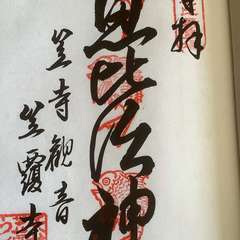 拝
恵比須神
笠寺觀音
笠覆寺